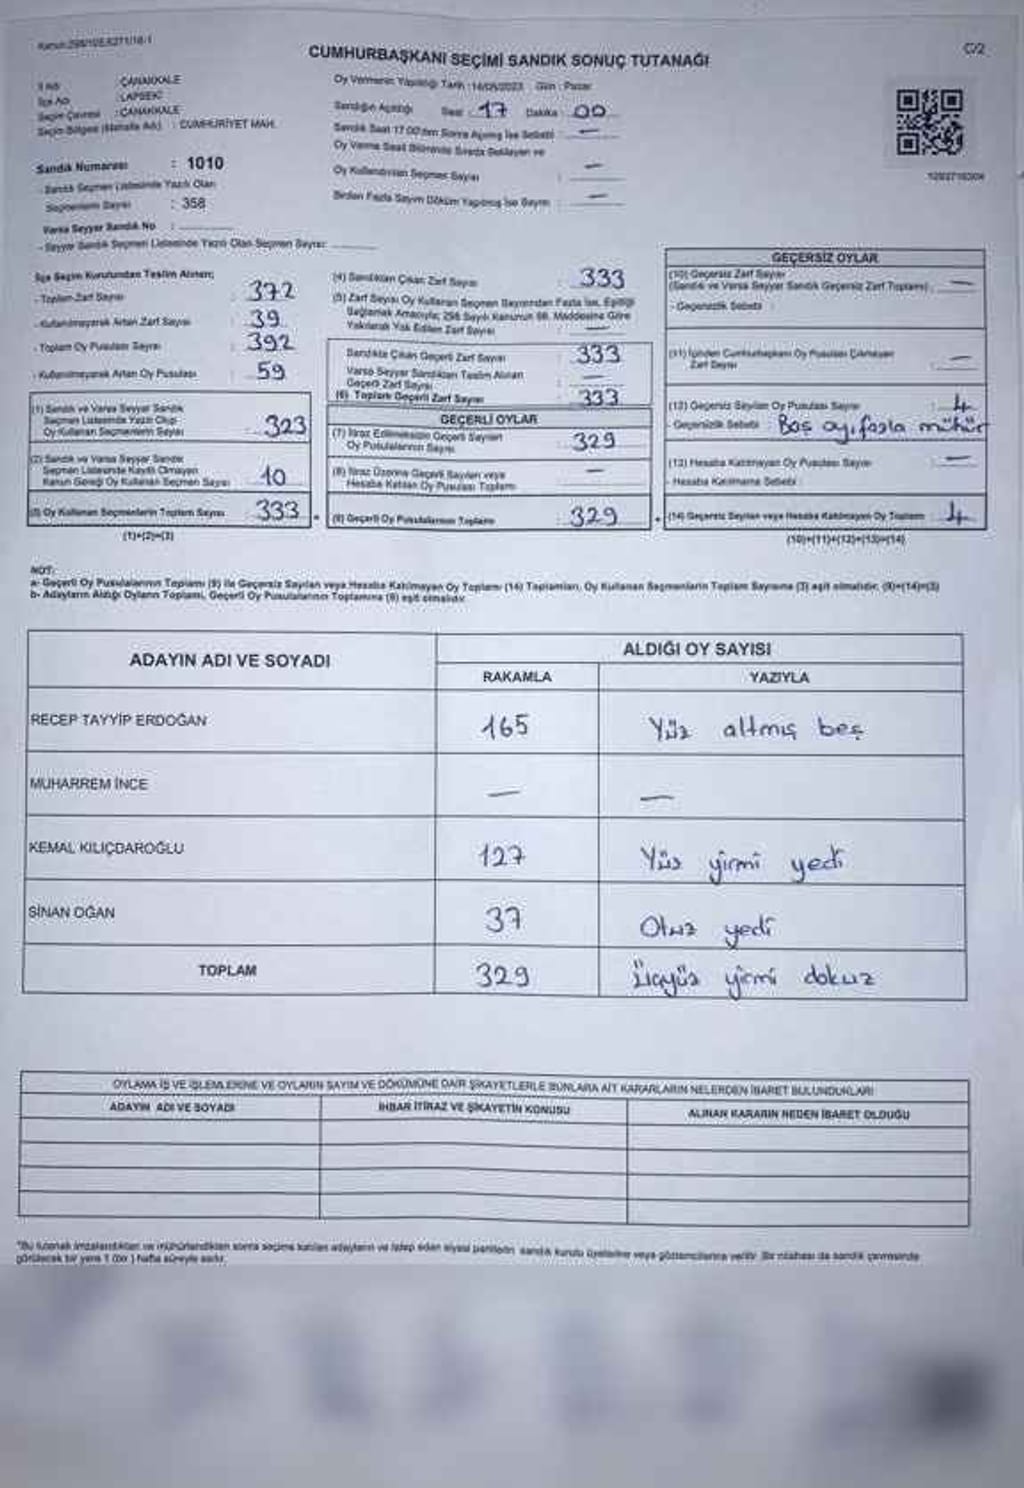 Kanun:298/105,6271/18-1
CUMHURBAŞKANI SEÇİMİ SANDIK SONUÇ TUTANAĞI
C/2
İl Adı : ÇANAKKALE
İlçe Adı : LAPSEKİ
Seçim Çevresi : ÇANAKKALE
Seçim Bölgesi (Mahalle Adı) : CUMHURİYET MAH.
Sandık Numarası : 1010
- Sandık Seçmen Listesinde Yazılı Olan
Seçmenlerin Sayısı : 358
Varsa Seyyar Sandık No :
- Seyyar Sandık Seçmen Listesinde Yazılı Olan Seçmen Sayısı:
Oy Vermenin Yapıldığı Tarih : 14/05/2023 Gün : Pazar
Sandığın Açıldığı Saat : 17 Dakika : 00
Sandık Saat 17.00'den Sonra Açılmış İse Sebebi : —
Oy Verme Saati Bitiminde Sırada Bekleyen ve
Oy Kullandırılan Seçmen Sayısı : —
Birden Fazla Sayım Döküm Yapılmış İse Sayısı : —
İlçe Seçim Kurulundan Teslim Alınan;
- Toplam Zarf Sayısı : 372
- Kullanılmayarak Artan Zarf Sayısı : 39
- Toplam Oy Pusulası Sayısı : 392
- Kullanılmayarak Artan Oy Pusulası : 59
(1) Sandık ve Varsa Seyyar Sandık
Seçmen Listesinde Yazılı Olup
Oy Kullanan Seçmenlerin Sayısı : 323
(2) Sandık ve Varsa Seyyar Sandık
Seçmen Listesinde Kayıtlı Olmayan
Kanun Gereği Oy Kullanan Seçmen Sayısı : 10
(3) Oy Kullanan Seçmenlerin Toplam Sayısı : 333
(1)+(2)=(3)
(4) Sandıktan Çıkan Zarf Sayısı : 333
(5) Zarf Sayısı Oy Kullanan Seçmen Sayısından Fazla İse, Eşitliği
Sağlamak Amacıyla; 298 Sayılı Kanunun 98. Maddesine Göre
Yakılarak Yok Edilen Zarf Sayısı : —
Sandıkta Çıkan Geçerli Zarf Sayısı : 333
Varsa Seyyar Sandıktan Teslim Alınan
Geçerli Zarf Sayısı : —
(6) Toplam Geçerli Zarf Sayısı : 333
GEÇERLİ OYLAR
(7) İtiraz Edilmeksizin Geçerli Sayılan
Oy Pusulalarının Sayısı : 329
(8) İtiraz Üzerine Geçerli Sayılan veya
Hesaba Katılan Oy Pusulası Toplamı : —
(9) Geçerli Oy Pusulalarının Toplamı : 329
GEÇERSİZ OYLAR
(10) Geçersiz Zarf Sayısı
(Sandık ve Varsa Seyyar Sandık Geçersiz Zarf Toplamı) : —
- Geçersizlik Sebebi :
(11) İçinden Cumhurbaşkanı Oy Pusulası Çıkmayan
Zarf Sayısı : —
(12) Geçersiz Sayılan Oy Pusulası Sayısı : 4
Geçersizlik Sebebi : Boş oy, fazla mühür
(13) Hesaba Katılmayan Oy Pusulası Sayısı : —
- Hesaba Katılmama Sebebi :
(14) Geçersiz Sayılan veya Hesaba Katılmayan Oy Toplamı : 4
(10)+(11)+(12)+(13)=(14)
NOT:
a- Geçerli Oy Pusulalarının Toplamı (9) ile Geçersiz Sayılan veya Hesaba Katılmayan Oy Toplamı (14) Toplamları, Oy Kullanan Seçmenlerin Toplam Sayısına (3) eşit olmalıdır. (9)+(14)=(3)
b- Adayların Aldığı Oyların Toplamı, Geçerli Oy Pusulalarının Toplamına (9) eşit olmalıdır.
ADAYIN ADI VE SOYADI
ALDIĞI OY SAYISI
RAKAMLA YAZIYLA
RECEP TAYYİP ERDOĞAN 165 Yüz altmış beş
MUHARREM İNCE — —
KEMAL KILIÇDAROĞLU 127 Yüz yirmi yedi
SİNAN OĞAN 37 Otuz yedi
TOPLAM 329 Üçyüz yirmi dokuz
OYLAMA İŞ VE İŞLEMLERİNE VE OYLARIN SAYIM VE DÖKÜMÜNE DAİR ŞİKAYETLERLE BUNLARA AİT KARARLARIN NELERDEN İBARET BULUNDUKLARI
ADAYIN ADI VE SOYADI İHBAR İTİRAZ VE ŞİKAYETİN KONUSU ALINAN KARARIN NEDEN İBARET OLDUĞU
"Bu tutanak imzalandıktan ve mühürlendikten sonra seçime katılan adayların ve talep eden siyasi partilerin sandık kurulu üyelerine veya gözlemcilerine verilir. Bir nüshası da sandık çevresinde
görülecek bir yere 1 (bir) hafta süreyle asılır.